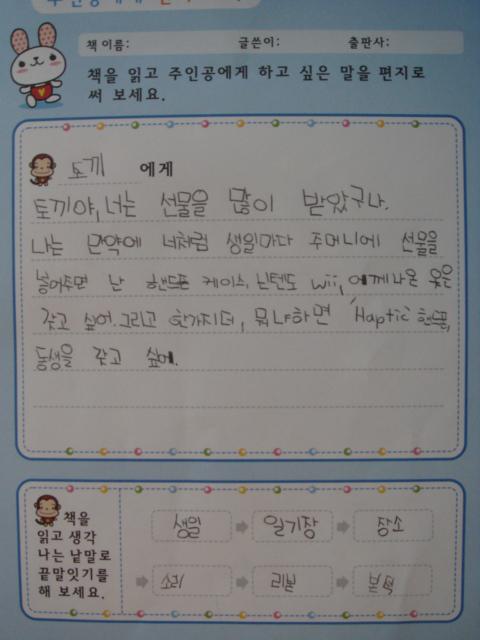 책 이름: 글쓴이: 출판사:
책을 읽고 주인공에게 하고 싶은 말을 편지로
써 보세요.
토끼 에게
토끼야, 너는 선물을 많이 받았구나.
나는 만약에 너처럼 생일마다 주머니에 선물을
넣어주면 난 핸드폰 케이스, 닌텐도 wii, 어제 나온 옷을
갖고 싶어. 그리고 한가지 더, 뭐냐하면 'Haptic' 핸폰,
동생을 갖고 싶어.
책을
읽고 생각
나는 낱말로
끝말잇기를
해 보세요.
생일 일기장 장소
소리 리본